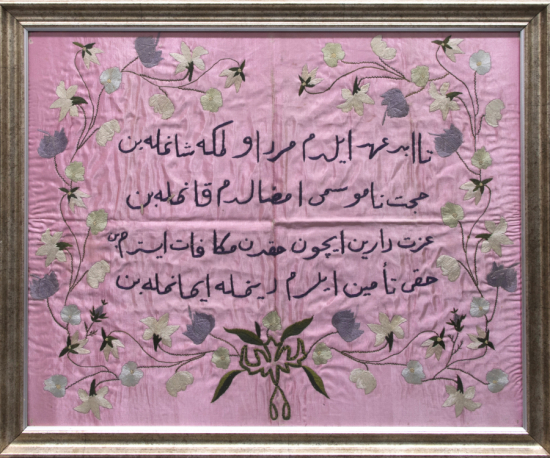 تا ابد عهد ایلدم مرد اولمكه شانمله بن
حجت ناموسمی امضالدم قانمله بن
عزت دارین ایچون حقدن مكافات ایسترم
حقی تأمین ایلرم دینمله ایمانمله بن